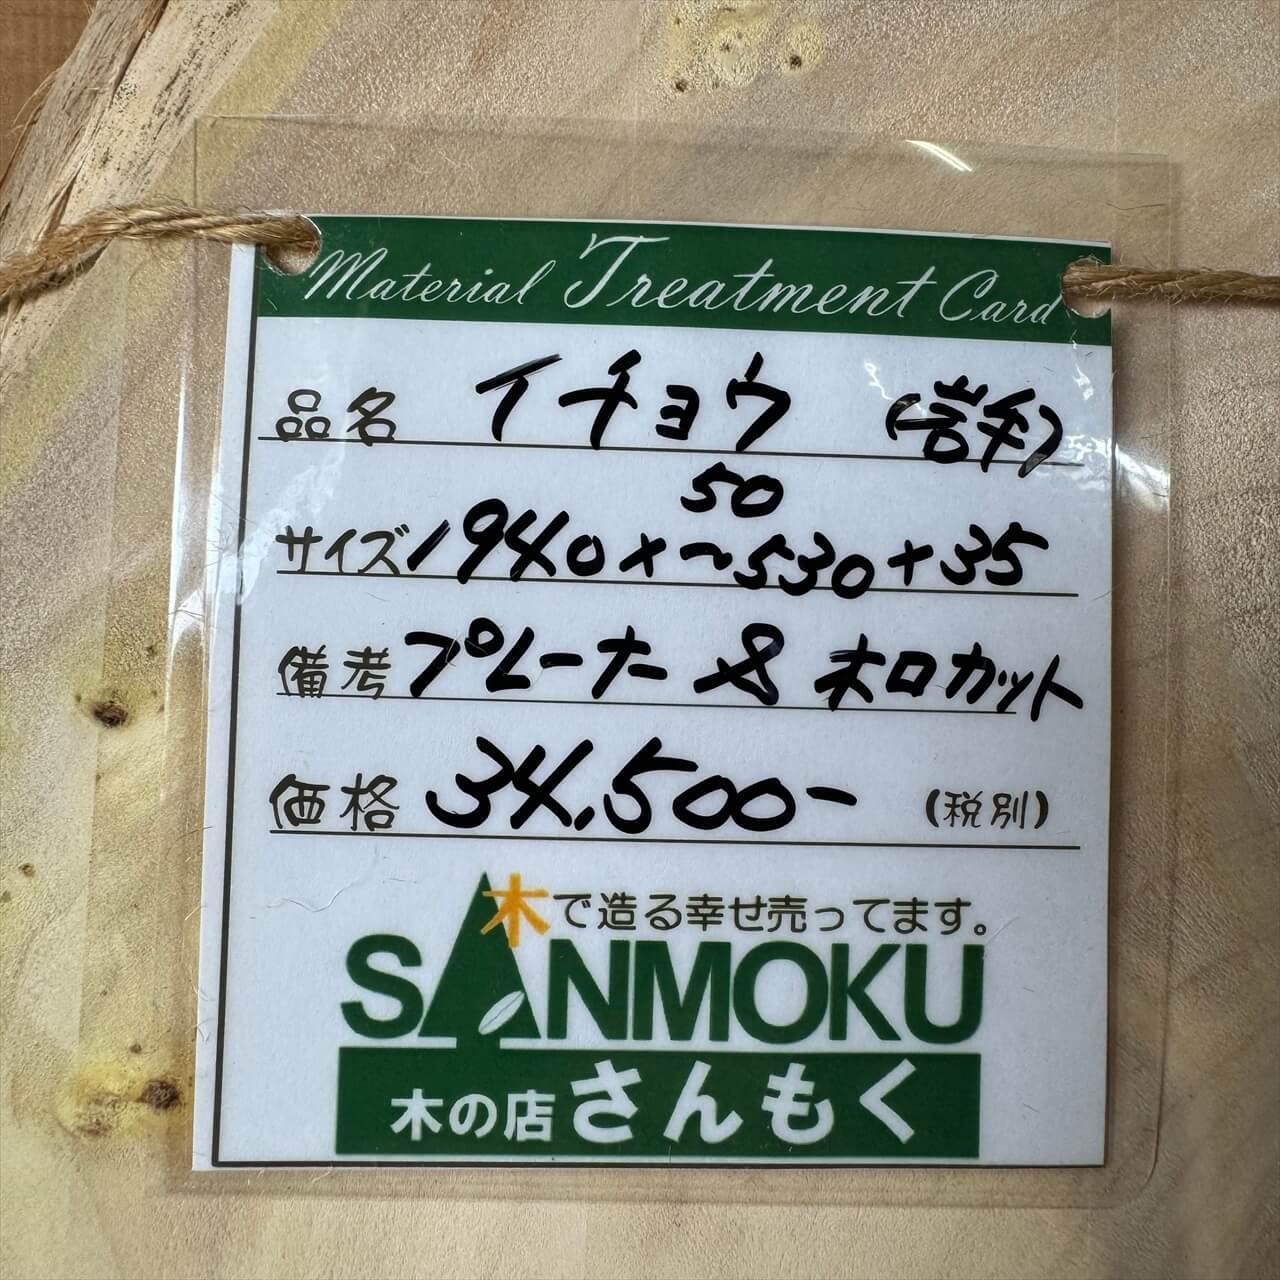 Material Treatment Card
品名 イチョウ (岩手)
50
サイズ 1940×〜530+35
備考 プレーナー & 木口カット
価格 34,500- (税別)
木で造る幸せ売ってます。
SANMOKU
木の店 さんもく